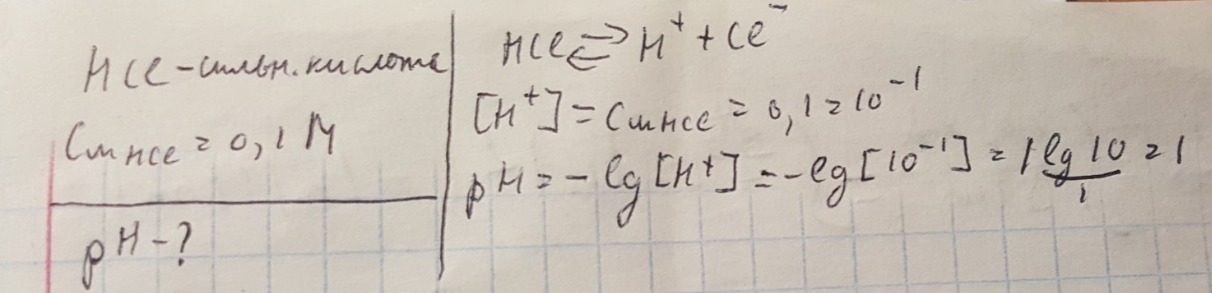 HCl - сильн. кислота
Cм HCl = 0,1 M
pH - ?
HCl ⇄ H⁺ + Cl⁻
[H⁺] = Cм HCl = 0,1 = 10⁻¹
pH = - lg [H⁺] = - lg [10⁻¹] = 1 lg 10 = 1
1